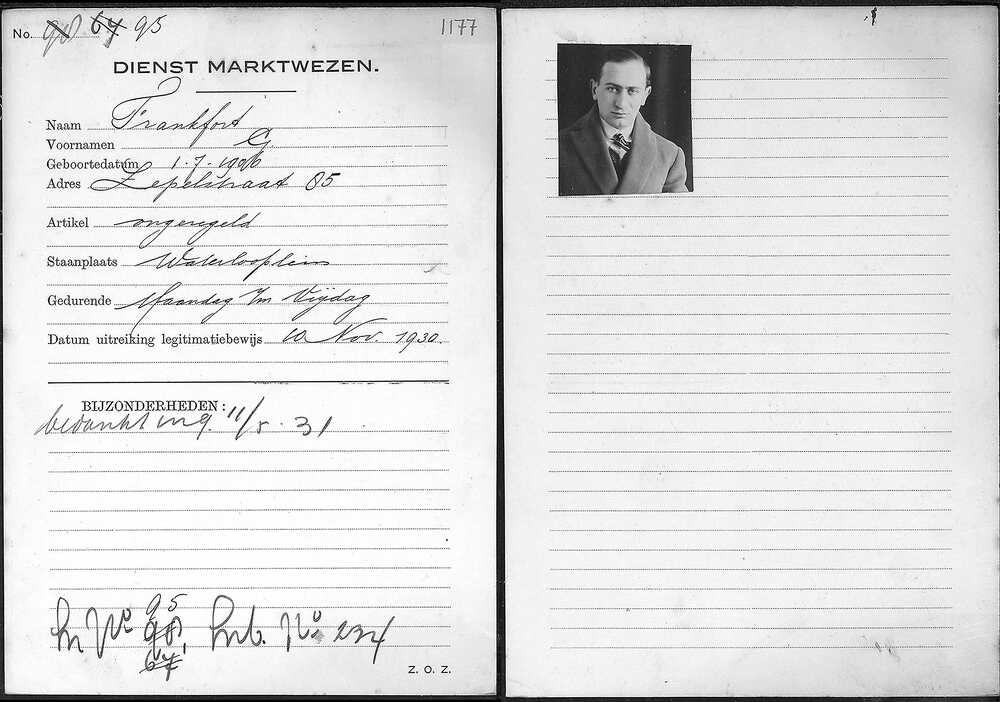 No. 98 67 95
1177
DIENST MARKTWEZEN.
Naam Frankfort
Voornamen G
Geboortedatum 1.7.1906
Adres Zepelstraat 85
Artikel ongeregeld
Staanplaats Waterlooplein
Gedurende Maandag t/m Vrijdag
Datum uitreiking legitimatiebewijs 10 Nov. 1930.
BIJZONDERHEDEN:
bedankt ing. 11/5.31
95
No 98, No 234
67
Z. O. Z.